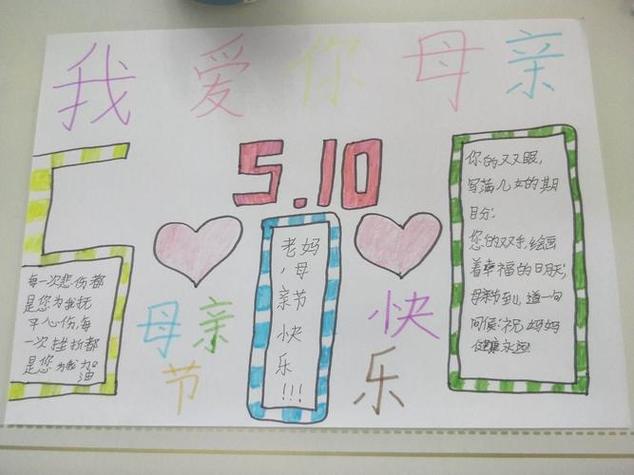 我爱你母亲
5.10
每一次悲伤都
是您为我抚
平心伤,每
一次挫折都
是您为我加
油
母亲
节
老妈
,母
亲节
快
乐
!!!
快
乐
你的双眼,
写满儿女的期
盼;
您的双手,绘画
着幸福的日子;
母亲节到,道一句
问候:祝妈妈
健康永远